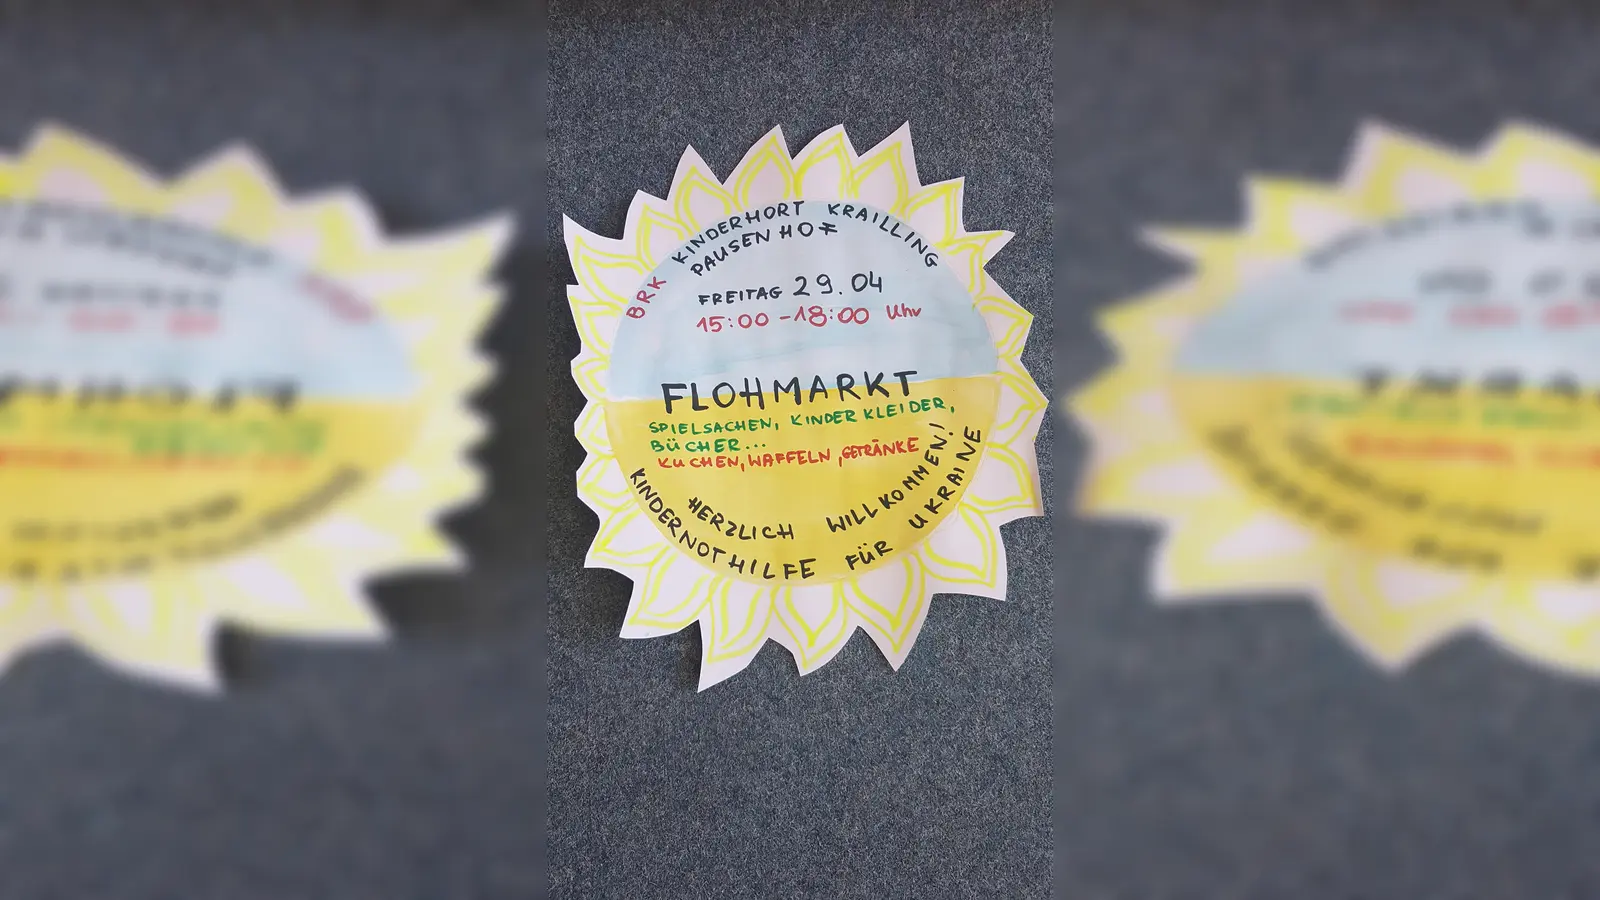 BRK KINDERHORT KRAILLING
PAUSENHOF
FREITAG 29.04
15:00 - 18:00 Uhr
FLOHMARKT
SPIELSACHEN, KINDERKLEIDER,
BÜCHER...
KUCHEN, WAFFELN, GETRÄNKE
HERZLICH WILLKOMMEN!
KINDERNOTHILFE FÜR UKRAINE